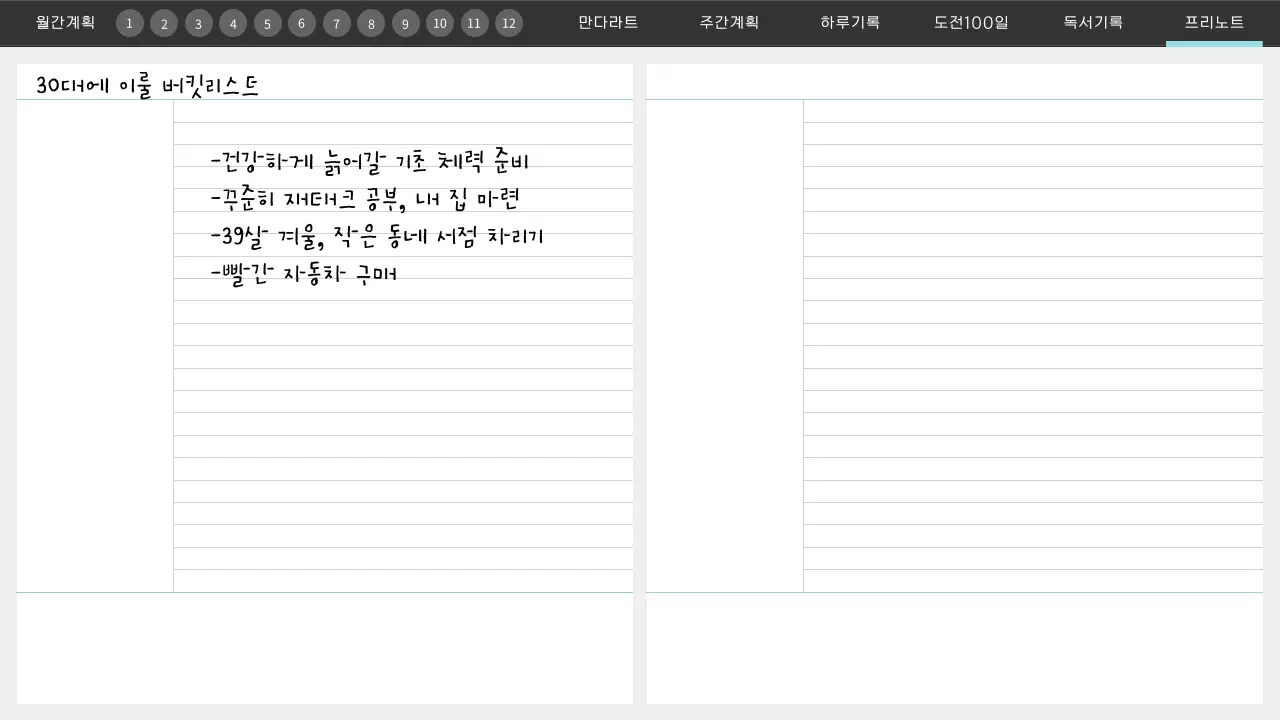 월간계획 1 2 3 4 5 6 7 8 9 10 11 12 만다라트 주간계획 하루기록 도전100일 독서기록 프리노트
30대에 이룰 버킷리스트
-건강하게 늙어갈 기초 체력 준비
-꾸준히 재태크 공부, 내 집 마련
-39살 겨울, 작은 동네 서점 차리기
-빨간 자동차 구매